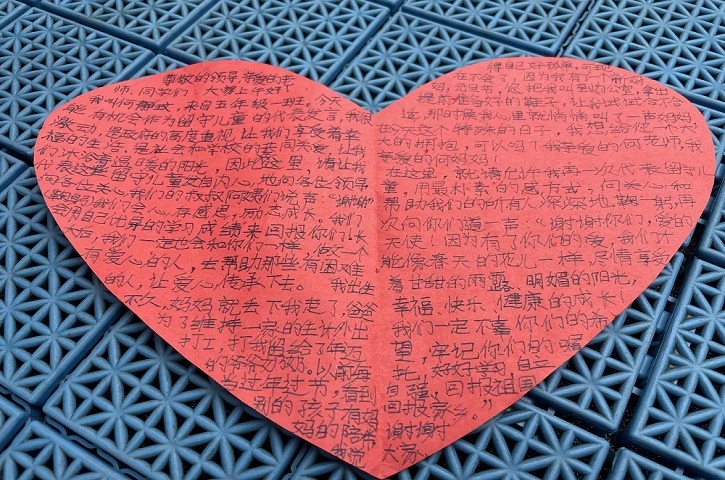 尊敬的领导,亲爱的老
师、同学们,大家上午好!
我叫何静 ,来自五年级一班。今天
能有机会作为留守儿童的代表发言,我很
激动,是政府的高度重视,让我们享受着幸
福的生活,是社会和学校的共同关爱,让我
们沐浴着温暖的阳光,因此在这里,请让我
代表这里留守儿童发自内心地向各位领导
向各位关心我们的叔叔阿姨们说声:“谢谢”
我们会心存感恩,励志成长。我们
会用自己优异的学习成绩来回报你们!长
大后,我们一定也会和你们一样,做一个
有爱心的人,去帮助那些有困难
的人,让爱心传承下去。我出生
不久,妈妈就丢下我走了,爸爸
为了维持一家的生计外出
打工,打我留给了年迈
的爷爷奶奶。以前每
当过年过节,看到
别的孩子有妈
妈的陪伴
我觉
得自己好孤单,可现
在不会了,因为我有了个新妈
妈, 您把我叫到办公室,拿出
提前准备好的鞋子,让我试试合不合
适,那时候我心里就悄悄叫了一声妈妈
在今天这个特殊的日子,我想给您一个大
大的拥抱,可以吗?我亲爱的何老师,我
亲爱的何妈妈!
在这里,就请允许我再一次代表留守儿
童,用最朴素的感方式,向关心和
帮助我们的所有人深深地鞠一躬,再
次向你们道一声“谢谢你们,爱的
天使!因为有了你们的爱,我们才
能像春天的花儿一样,尽情享受
着甘甜的雨露、明媚的阳光,
幸福、快乐、健康的成长!
我们一定不辜你们的希
望,牢记你们的嘱
托,好好学习,自立
自强,回报祖国
回报家乡。”
谢谢
大家